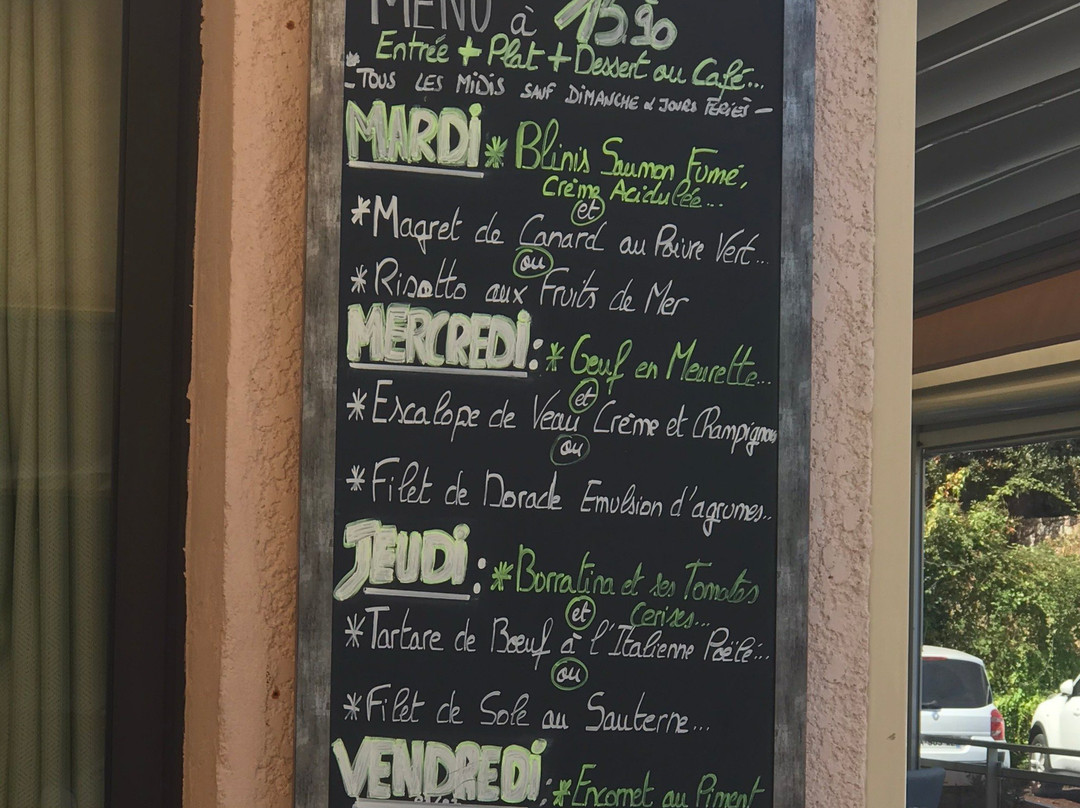 MENU à 13.90
Entrée + Plat + Dessert ou Café...
- TOUS LES MIDIS SAUF DIMANCHE & JOURS FERIÉS -
MARDI * Blinis Saumon Fumé,
Crème Acidulée...
et
* Magret de Canard au Poivre Vert...
ou
* Risotto aux Fruits de Mer
MERCREDI : * Oeuf en Meurette...
et
* Escalope de Veau Crème et Champignons
ou
* Filet de Dorade Emulsion d'agrumes..
JEUDI : * Burratina et ses Tomates
Cerises...
et
* Tartare de Boeuf à l'Italienne Poêlé...
ou
* Filet de Sole au Sauterne...
VENDREDI : * Encornet au Piment